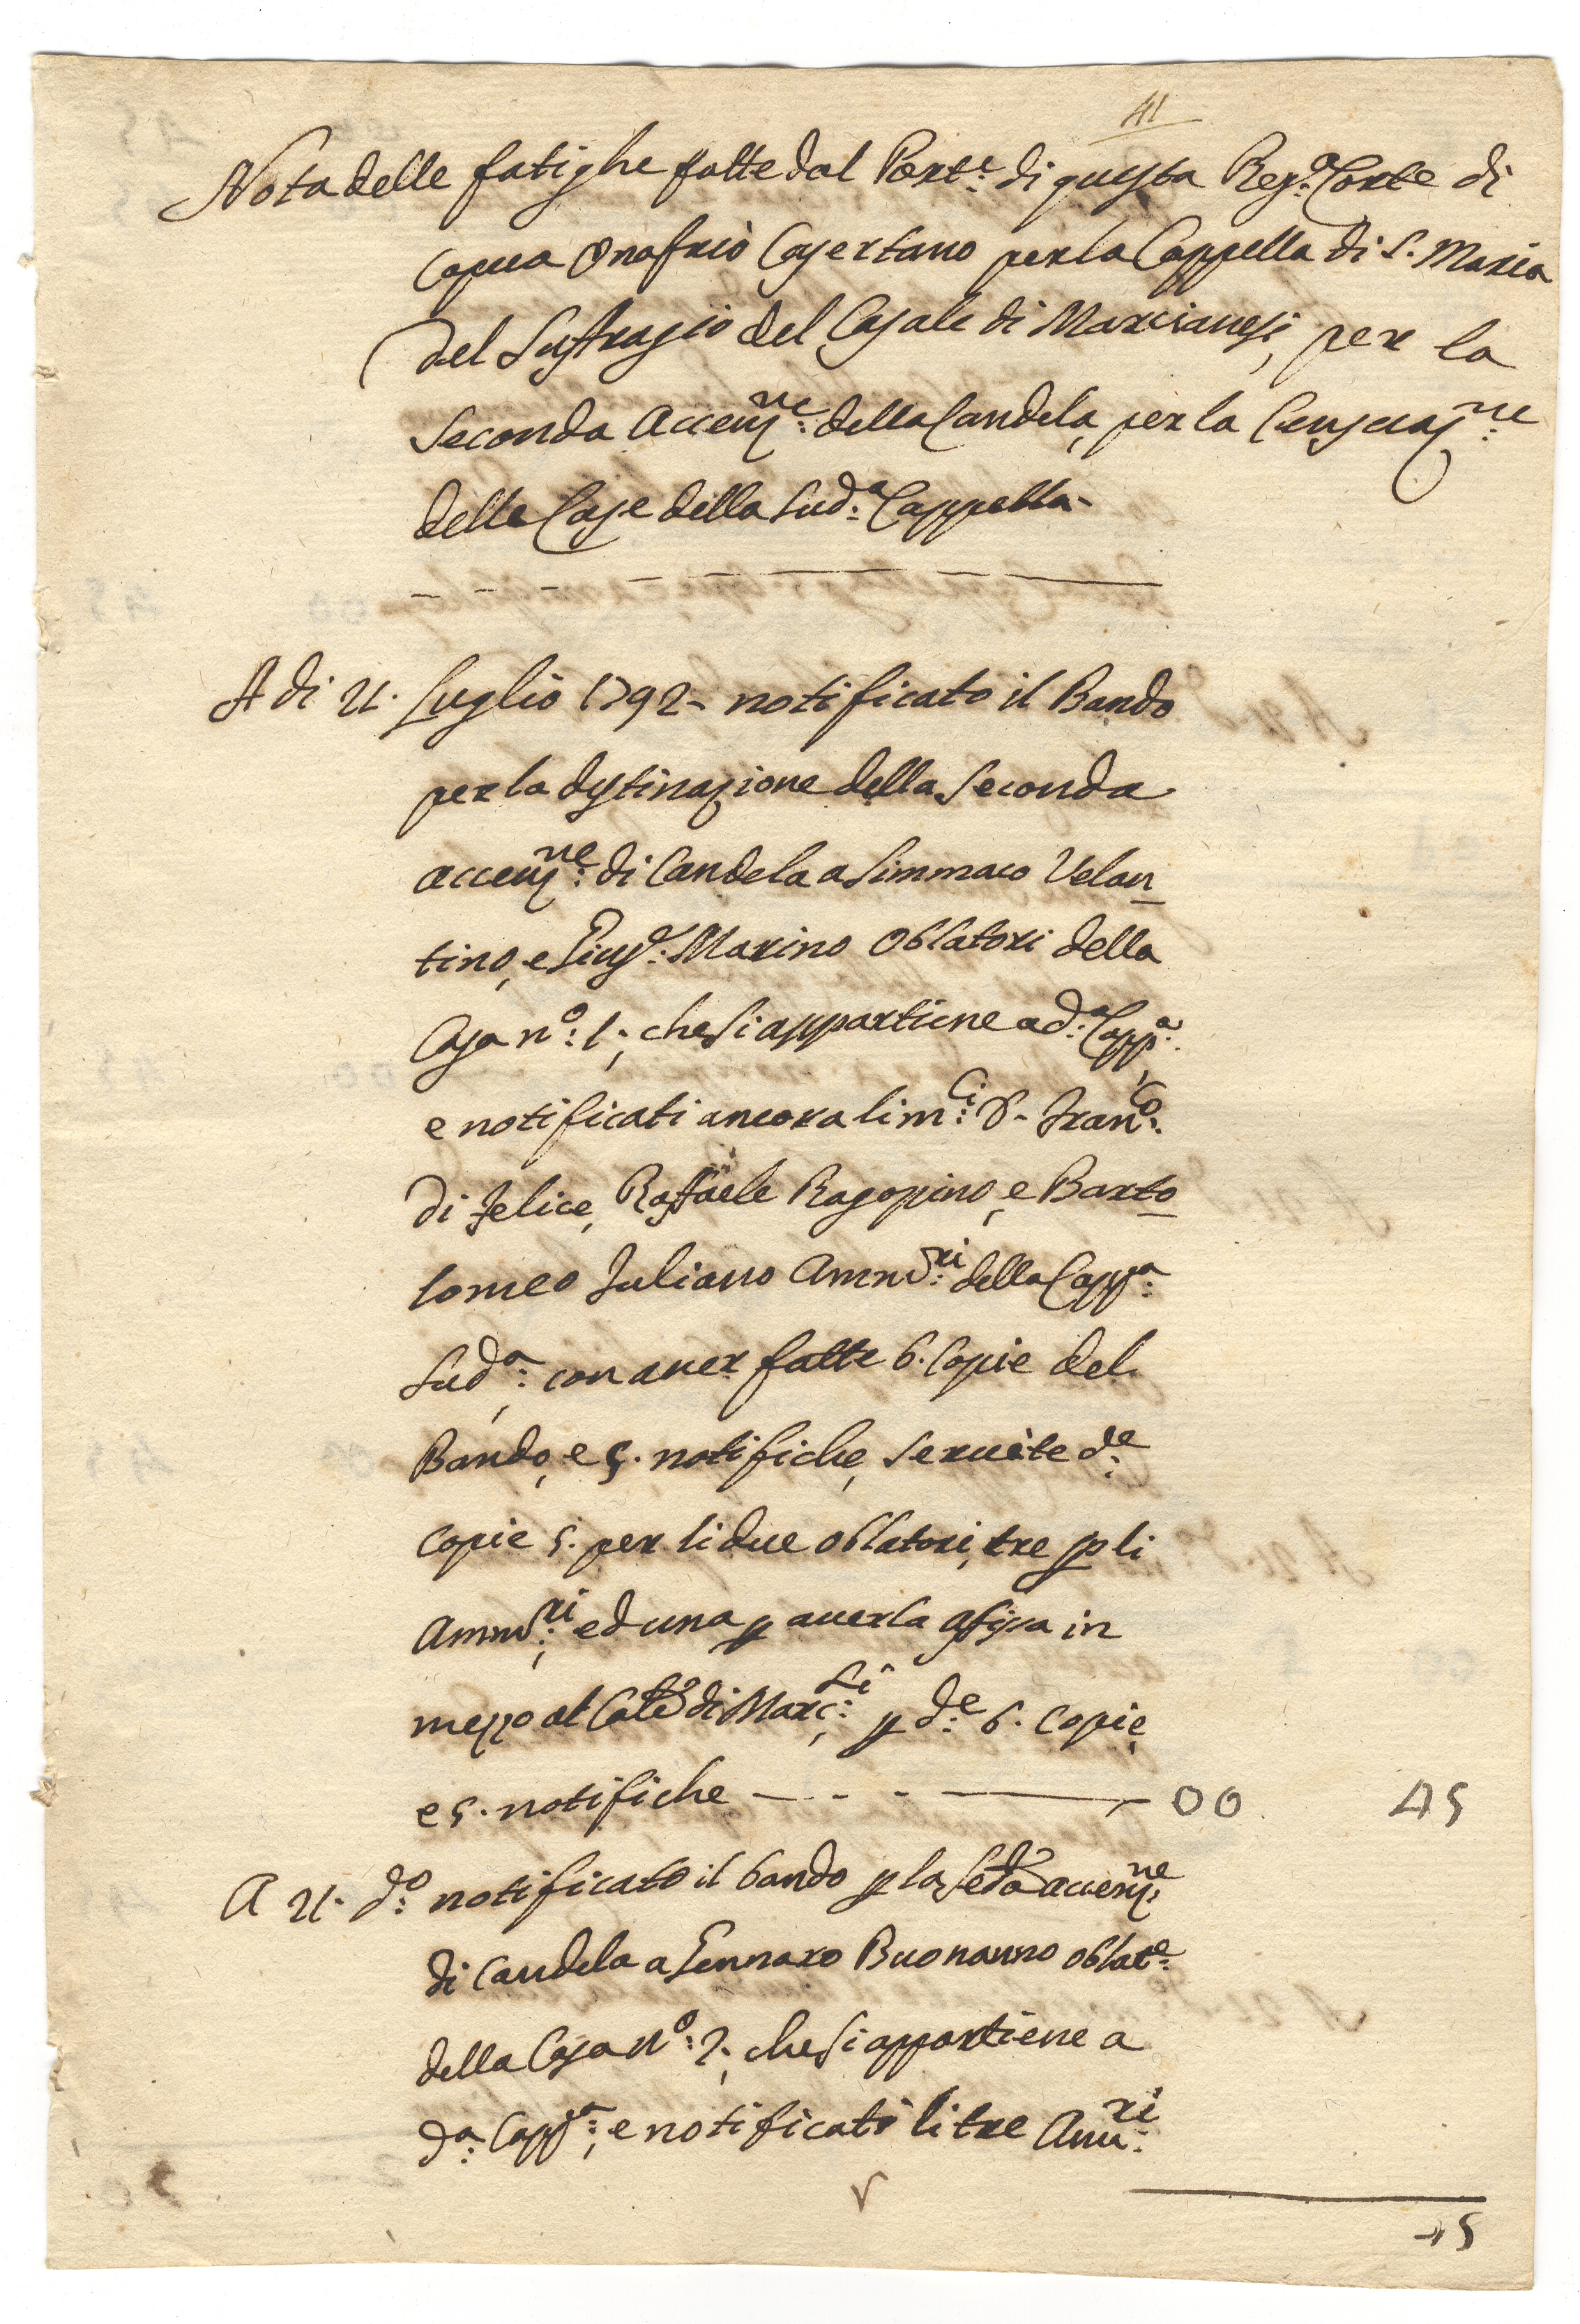 41
Nota delle fatighe fatte dal Port.e di questa Reg.a Corte di
Capua Onofrio Casertano per la Cappella di S. Maria
del Suffragio del Casale di Marcianesi, per la
Seconda Accenz.ne della Candela, per la Censuaz.ne
delle Case della Sud.a Cappella-
A di 21. Luglio 1792- notificato il Bando
per la destinazione della Seconda
accenz.ne di Candela a Simmaco Velan
tino, e Gius.e Marino Oblatori della
Casa n.o 1., che si appartiene a d.a Capp.a
e notificati ancora li m.ci D. Fran.co
di Felice, Raffaele Ragozino, e Barto
lomeo Iuliano Amm.ri della Capp.a
Sud.a, con aver fatte 6. Copie del
Bando, e 5. notifiche, servite d.e
Copie 5. per li due oblatori, tre p li
Amm.ri, ed una p averla afissa in
mezzo al di Marc.si, p d.e 6. Copie,
e 5. notifiche - 00 45
A 21. d.o notificato il bando p la Seda accenz.ne
di Candela a Gennaro Buonanno oblat.e
della Casa n.o 2., che si appartiene a
d.a Capp.a, e notificati li tre Amm.ri
45